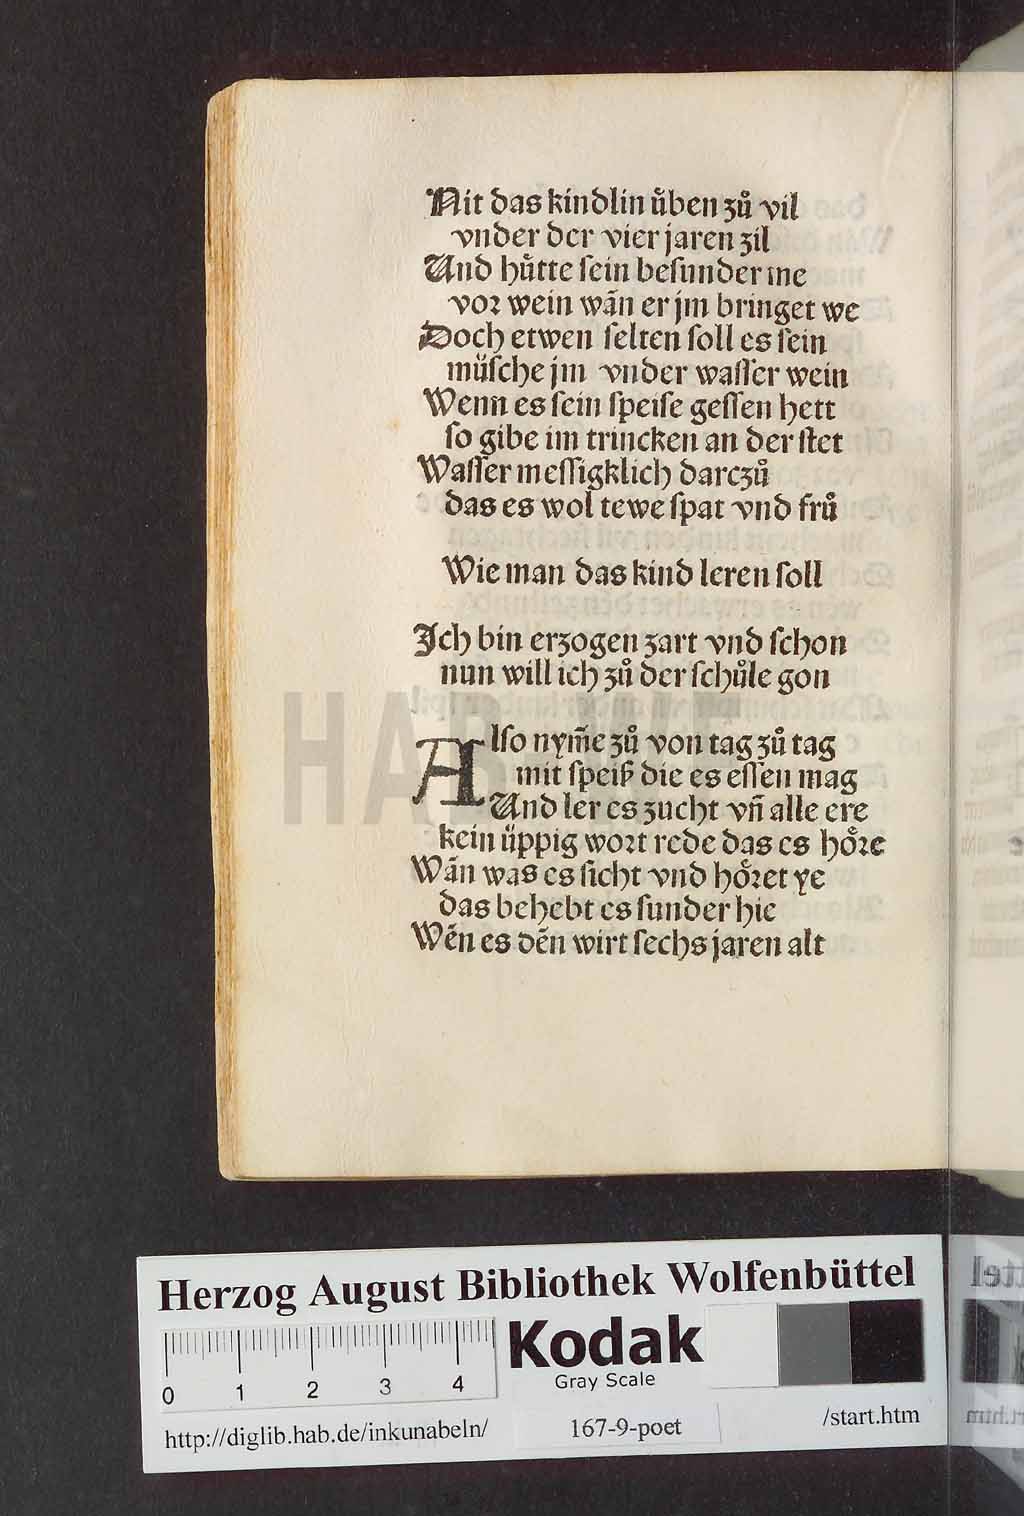 Nit das kindlin uͤben zuͦ vil
vnder der vier jaren zil
Und huͤtte sein besunder me
vor wein wãn er jm bringet we
Doch etwen selten soll es sein
muͤsche jm vnder wasser wein
Wenn es sein speise gessen hett
so gibe im trincken an der stet
Wasser messigklich darczuͦ
das es wol tewe spat vnd fruͦ
Wie man das kind leren soll
Ich bin erzogen zart vnd schon
nun will ich zuͦ der schuͦle gon
Also nym̃e zuͦ von tag zuͦ tag
mit speiß die es essen mag
Und ler es zucht vñ alle ere
kein uͤppig wort rede das es hoͤre
Wãn was es sicht vnd hoͤret ye
das behebt es sunder hie
Wẽn es dẽn wirt sechs jaren alt
HAB WF
Herzog August Bibliothek Wolfenbüttel
0 1 2 3 4
Kodak
Gray Scale
http://diglib.hab.de/inkunabeln/
167-9-poet
/start.htm